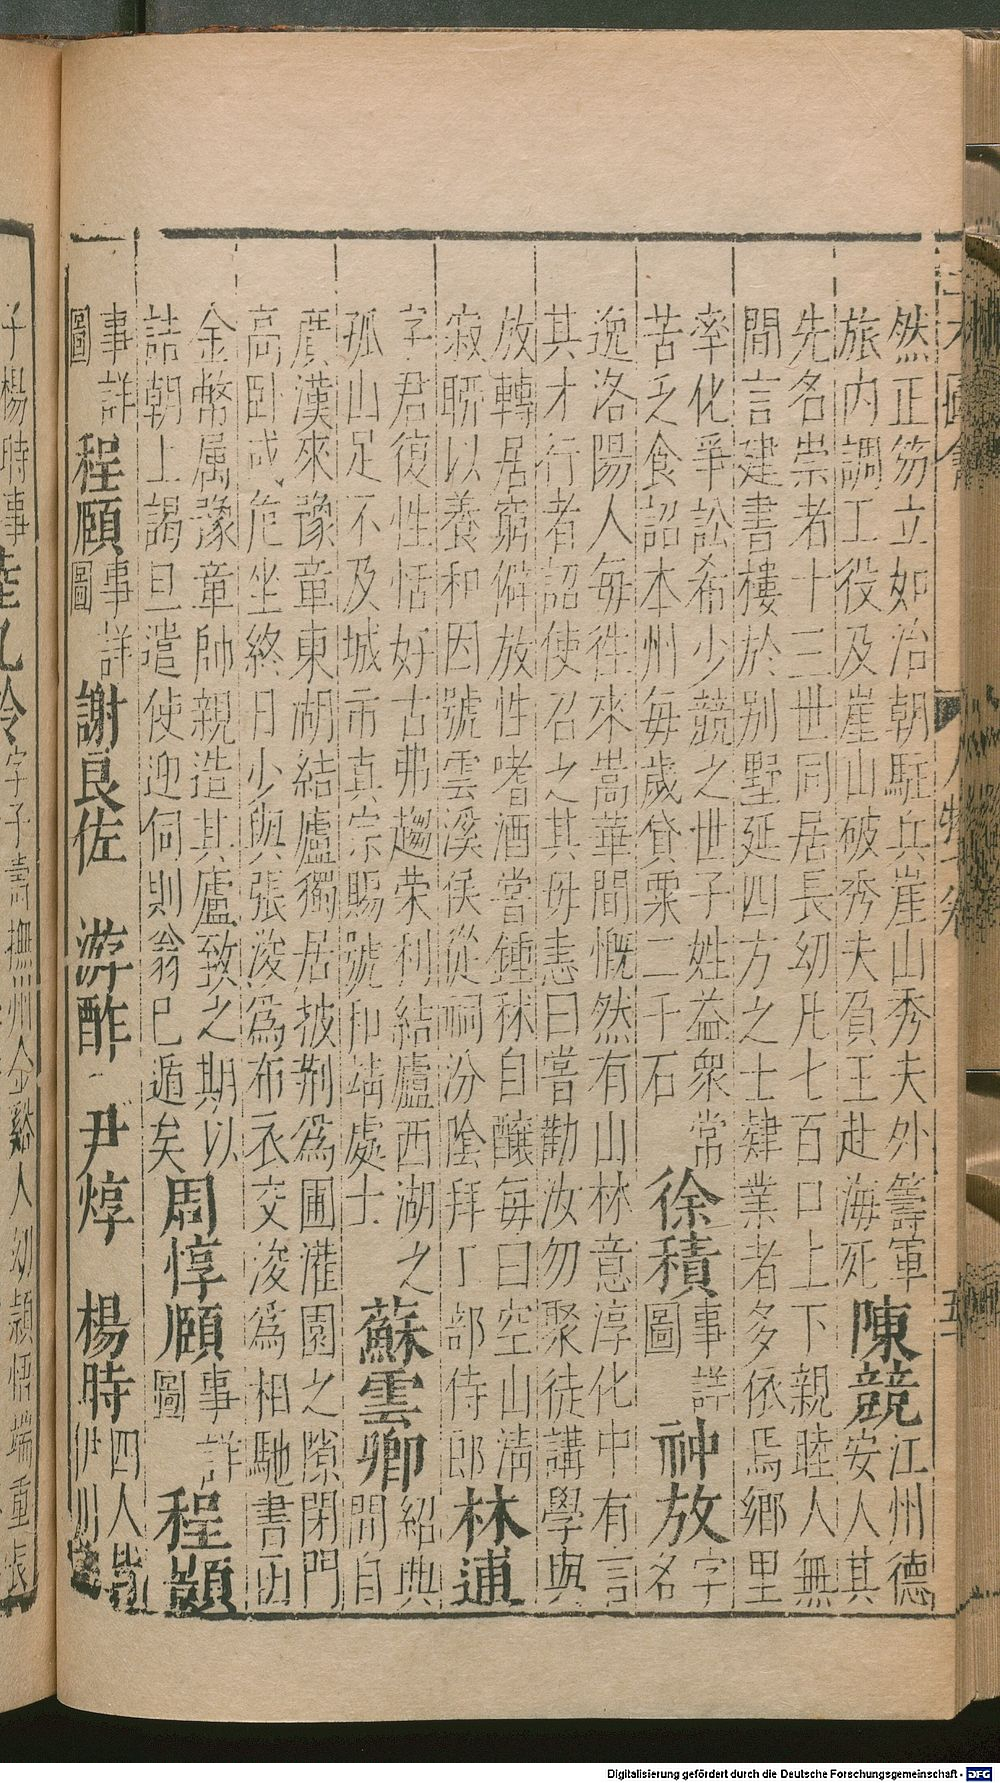 然正笏立如治朝駐兵崖山秀夫外籌軍
旅内調工役及崖山破秀夫負王赴海死
陳競
江州德
安人其
先名崇者十三世同居長幼凡七百口上下親睦人無
間言建書樓於别墅延四方之士肄業者多依焉鄉里
率化爭訟希少競之世子姓益衆常
苦乏食詔本州每歲貸粟二千石
徐積
事詳
圖
神放
字
名
逸洛陽人每徃來嵩華間慨然有山林意淳化中有言
其才行者詔使召之其母恚曰嘗勸汝勿聚徒講學與
放轉居窮僻放性嗜酒嘗鍾秫自釀每曰空山淸
寂聊以養和因號雲溪侯從祠汾隂拜工部侍郎
林逋
字君復性恬好古弗趨荣利結廬西湖之
孤山足不及城市真宗賜號和靖處士
蘇雲卿
紹興
間自
廣漢來豫章東湖結廬獨居披荆爲圃灌園之隙閉門
高卧或危坐終日少與張浚爲布衣交浚爲相馳書函
金幣属豫章帥親造其廬致之期以
詰朝上謁旦遣使迎伺則翁已遁矣
周惇頤
事詳
圖
程顥
事詳
圖
程頤
事詳
圖
謝良佐
游酢
尹焞
楊時
四人
伊川
子楊時事
陸九齡
字子壽撫州金谿人幼頴悟端重長
Digitalisierung gefördert durch die Deutsche Forschungsgemeinschaft - DFG